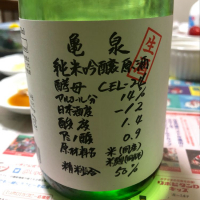 亀泉
生
純米吟醸原酒
酵母 CEL-24
アルコール分 14%
日本酒度 -12
酸度 1.4
アミノ酸 0.9
原材料名 米(国産)
米麹(国産米)
精米歩合 50%